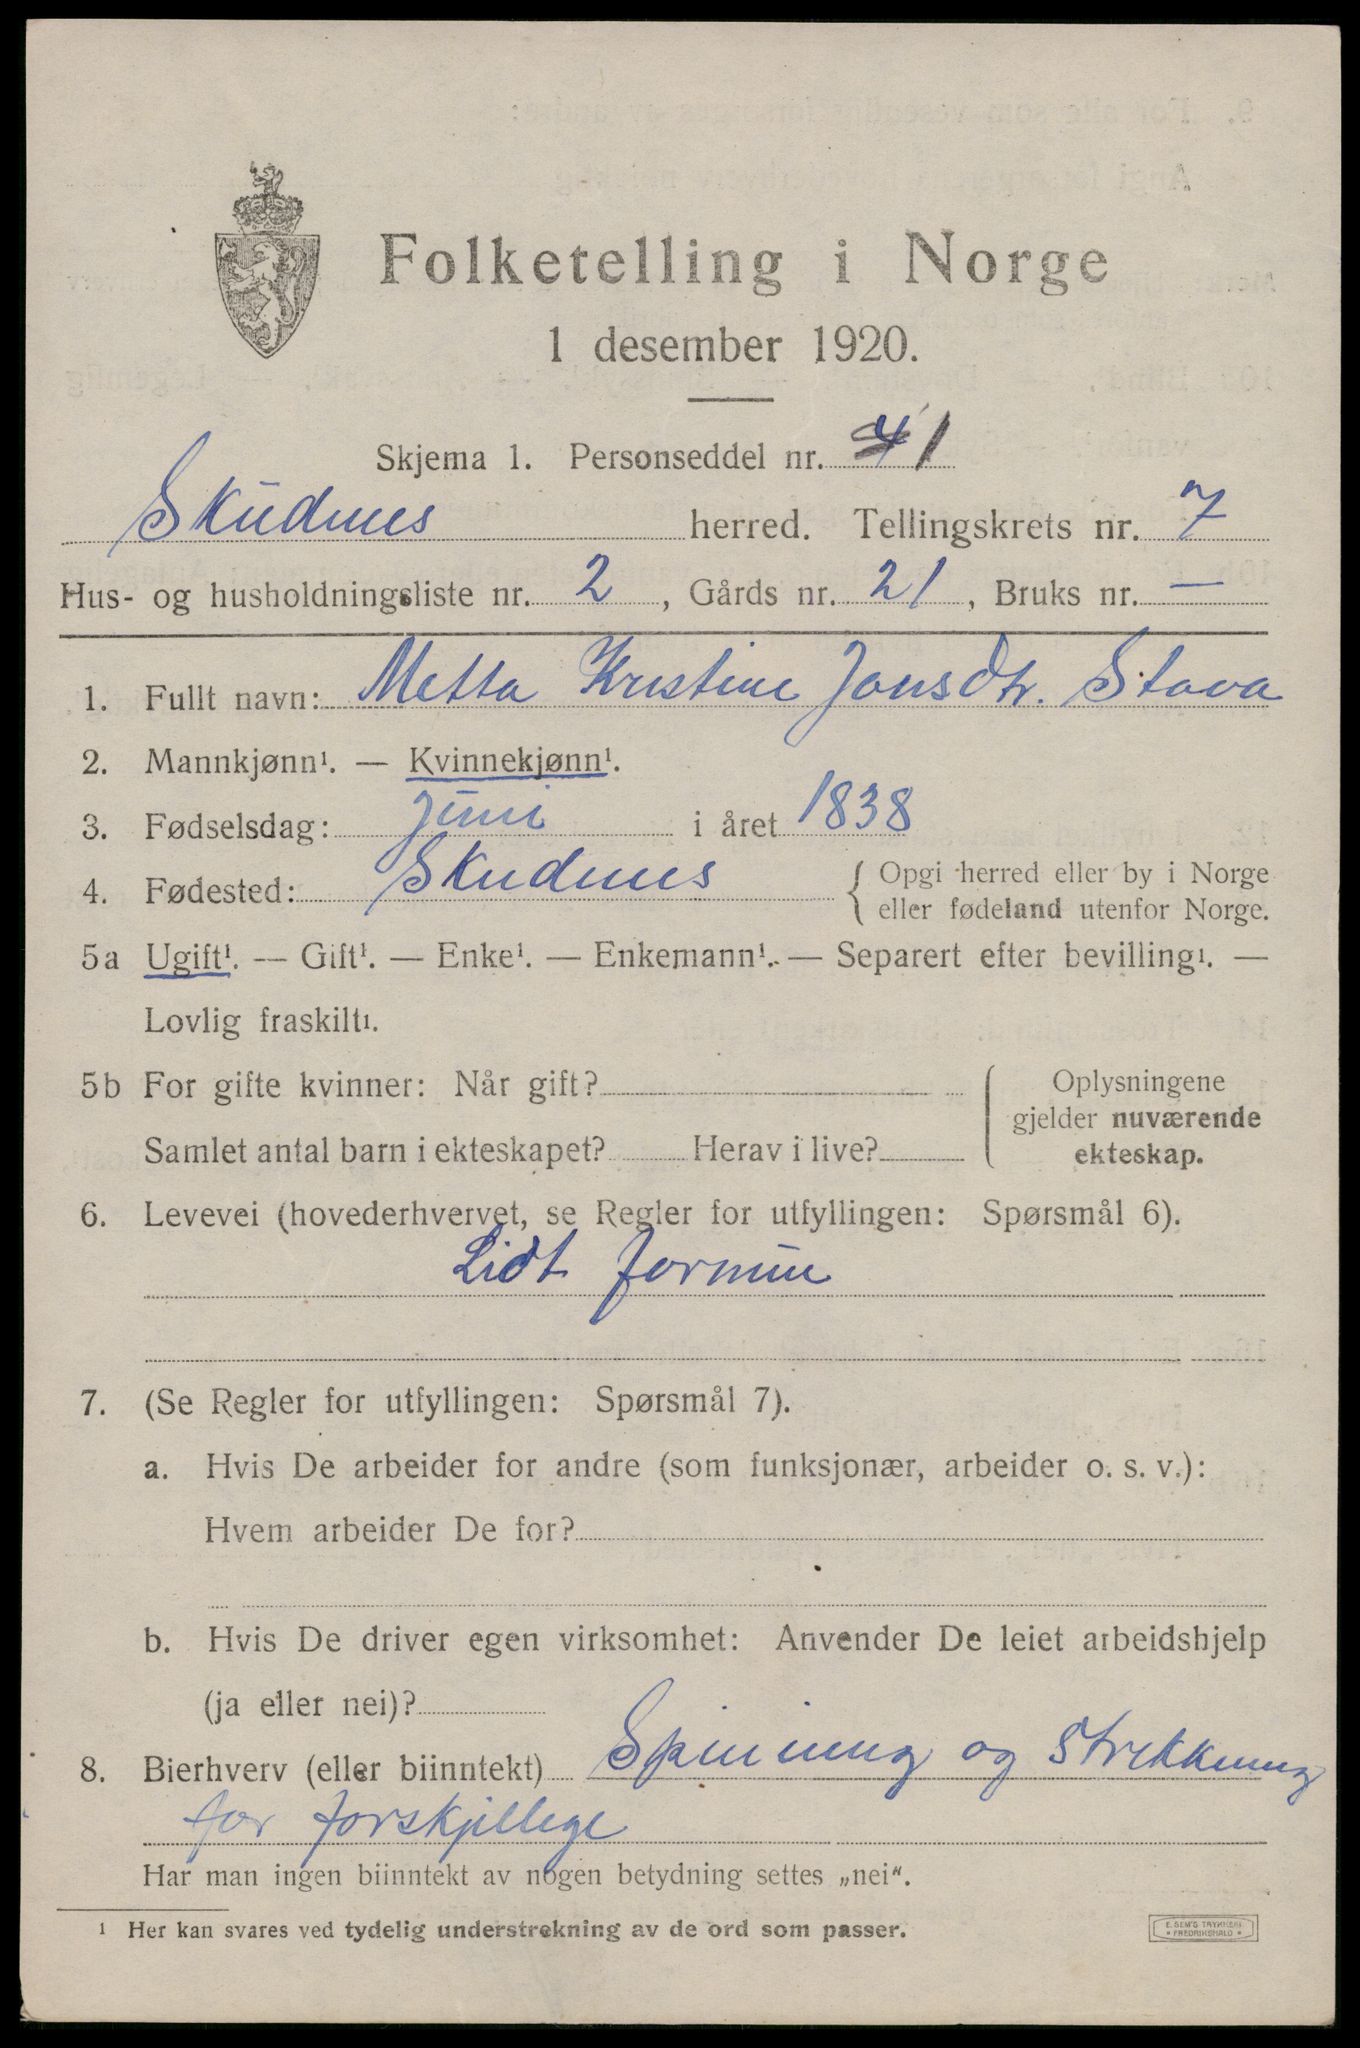 Folketelling i Norge
1 desember 1920.
Skjema 1. Personseddel nr. 41
Skudnes herred. Tellingskrets nr. 7
Hus- og husholdningsliste nr. 2, Gårds nr. 21, Bruks nr. —
1. Fullt navn: Metta Kristine Jonsdtr. Stava
2. Mannkjønn¹. — Kvinnekjønn¹.
3. Fødselsdag: Juni i året 1838
4. Fødested: Skudnes { Opgi herred eller by i Norge
eller fødeland utenfor Norge.
5a Ugift¹. — Gift¹. — Enke¹. — Enkemann¹. — Separert efter bevilling¹. —
Lovlig fraskilt¹.
5b For gifte kvinner: Når gift?
Samlet antal barn i ekteskapet? Herav i live?
Oplysningene
gjelder nuværende
ekteskap.
6. Levevei (hovederhvervet, se Regler for utfyllingen: Spørsmål 6).
Lidt formue
7. (Se Regler for utfyllingen: Spørsmål 7).
a. Hvis De arbeider for andre (som funksjonær, arbeider o. s. v.):
Hvem arbeider De for?
b. Hvis De driver egen virksomhet: Anvender De leiet arbeidshjelp
(ja eller nei)?
8. Bierhverv (eller biinntekt) Spinning og Strekkning
for forskjellege
Har man ingen biinntekt av nogen betydning settes „nei“.
¹ Her kan svares ved tydelig understrekning av de ord som passer.
E. SEM'S TRYKKERI
• FREDRIKSHALD •